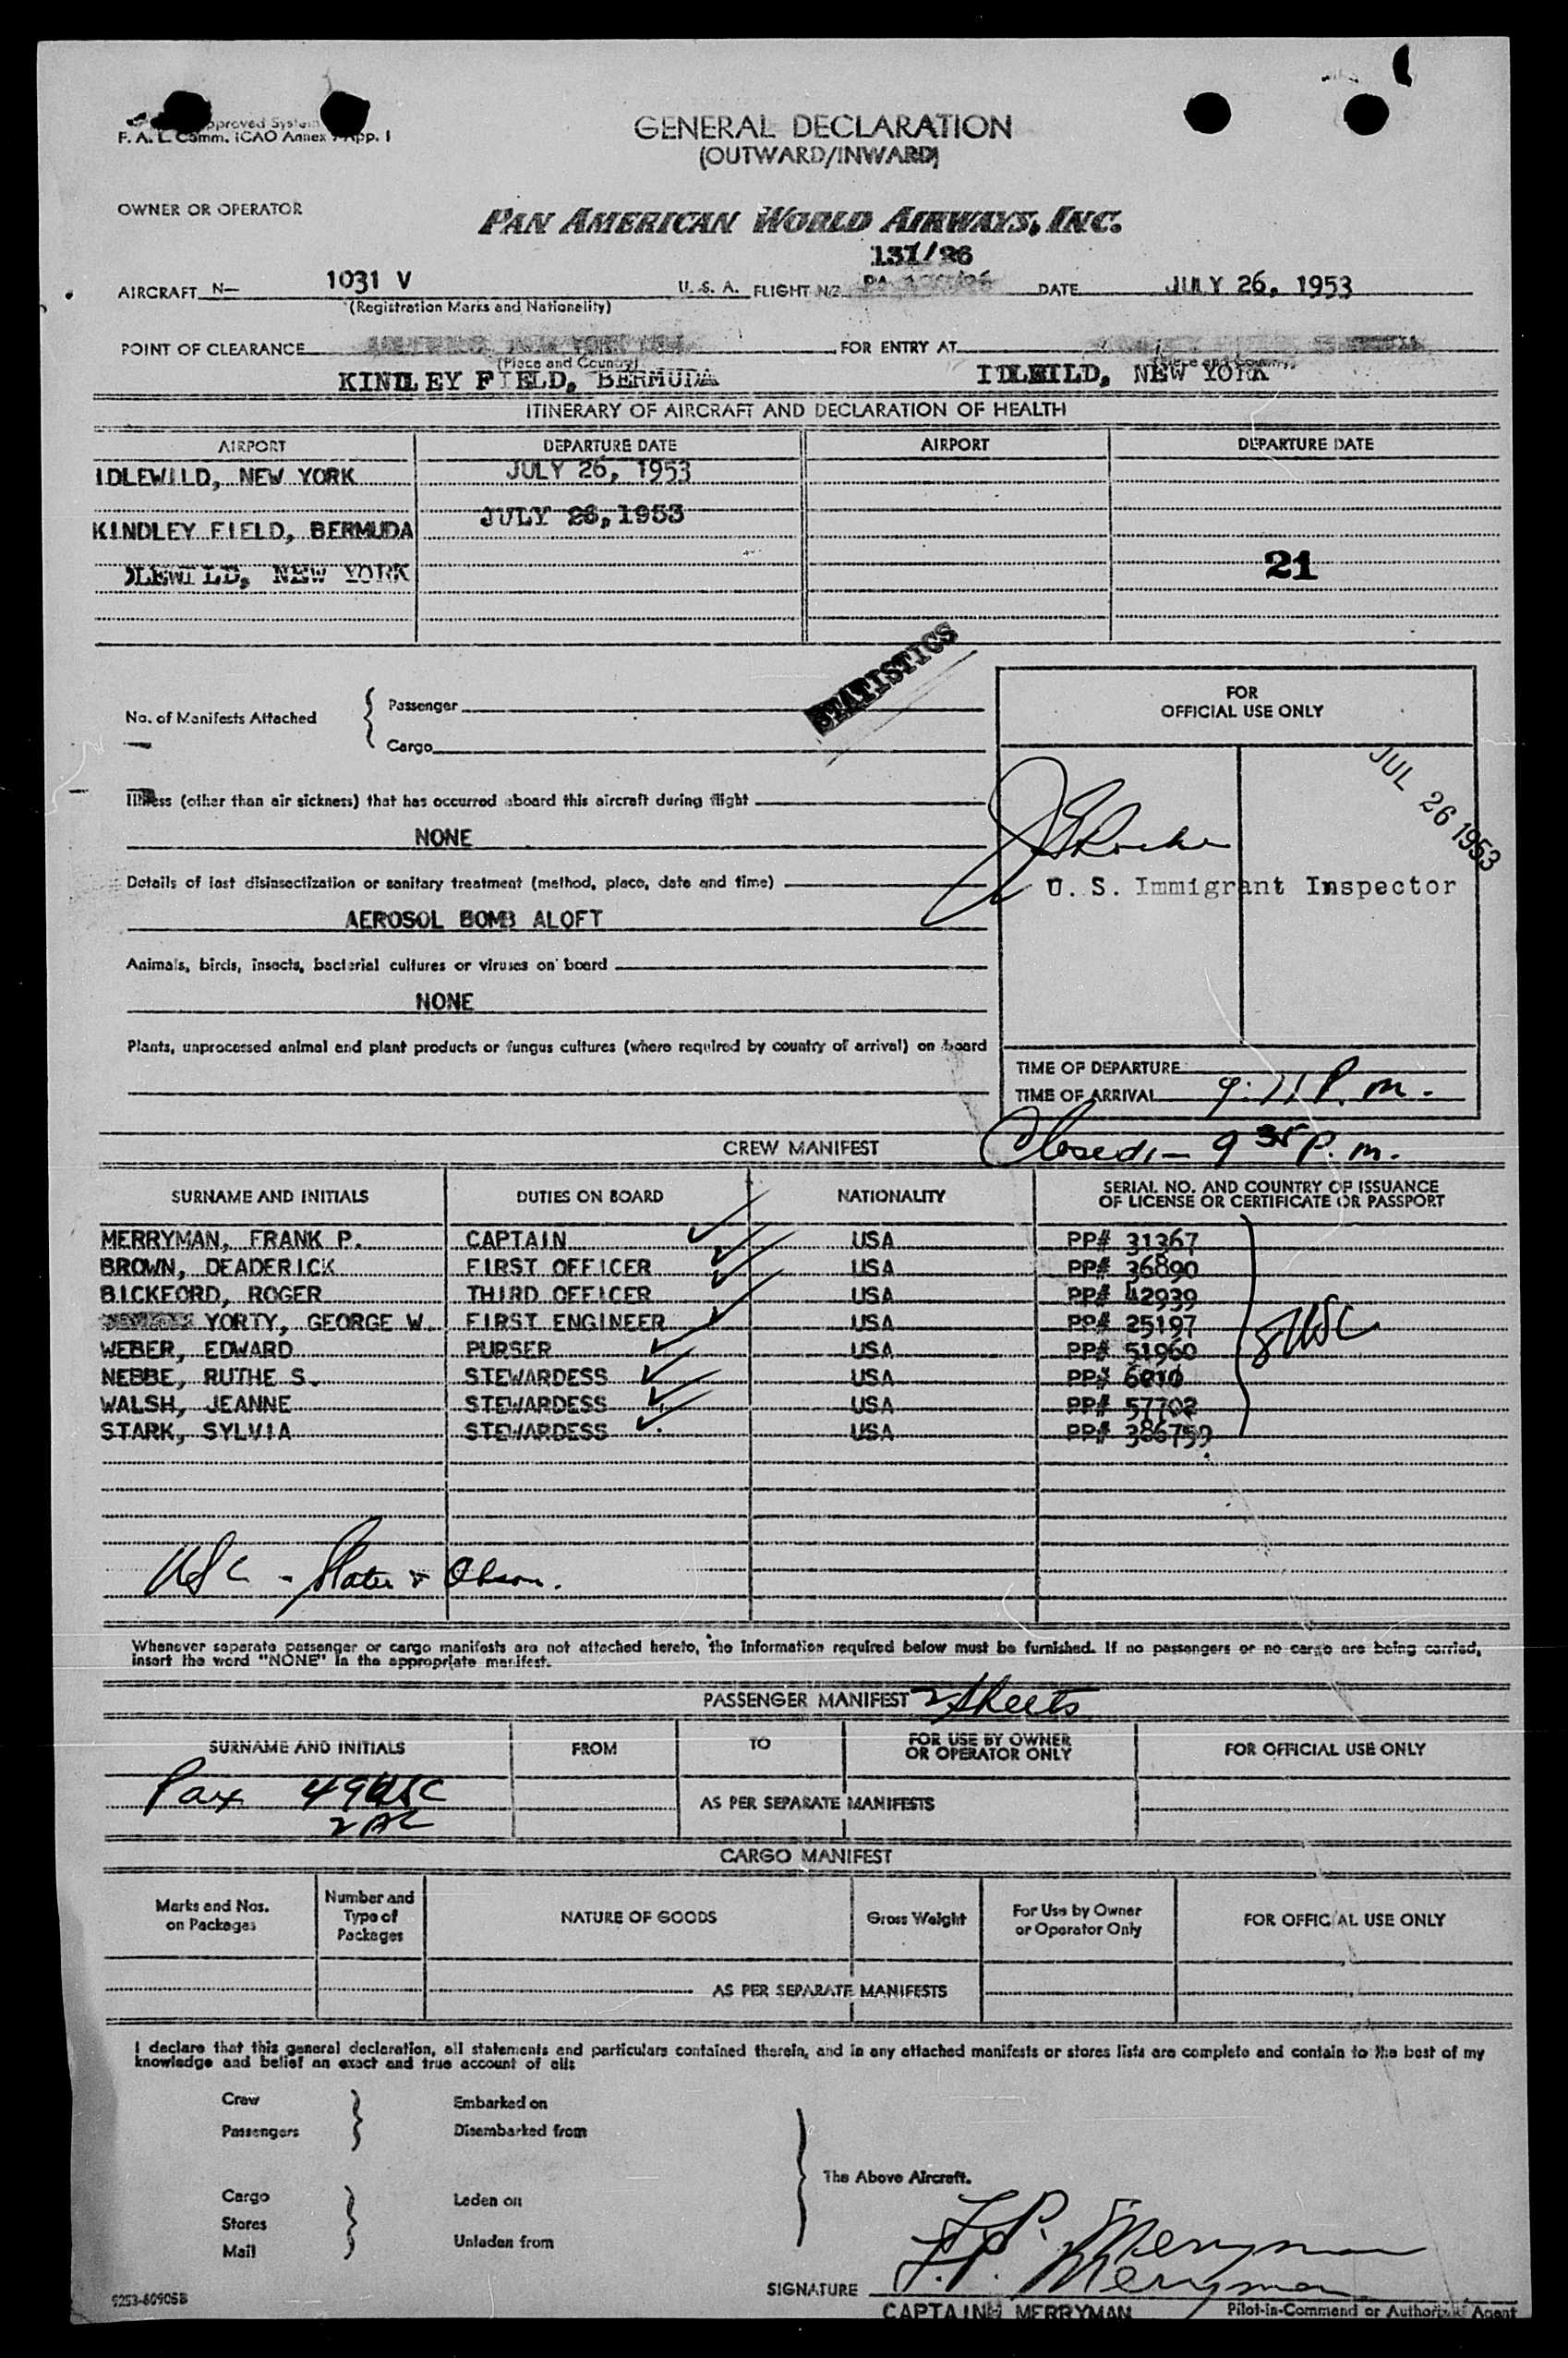 Approved System
F. A. L. Comm. ICAO Annex 9 App. I
GENERAL DECLARATION
(OUTWARD/INWARD)
OWNER OR OPERATOR
PAN AMERICAN WORLD AIRWAYS, INC.
131/26
AIRCRAFT N— 1031 V U. S. A. FLIGHT NO. PA DATE JULY 26, 1953
(Registration Marks and Nationality)
POINT OF CLEARANCE FOR ENTRY AT
(Place and Country)
KINDLEY FIELD, BERMUDA IDLEWILD, NEW YORK
ITINERARY OF AIRCRAFT AND DECLARATION OF HEALTH
AIRPORT DEPARTURE DATE AIRPORT DEPARTURE DATE
IDLEWILD, NEW YORK JULY 26, 1953
KINDLEY FIELD, BERMUDA JULY 26, 1953
DLEWILD, NEW YORK 21
STATISTICS
FOR
OFFICIAL USE ONLY
No. of Manifests Attached
Passenger
Cargo
JUL 26 1953
Illness (other than air sickness) that has occurred aboard this aircraft during flight
NONE
Details of last disinsectization or sanitary treatment (method, place, date and time)
U. S. Immigrant Inspector
AEROSOL BOMB ALOFT
Animals, birds, insects, bacterial cultures or viruses on board
NONE
Plants, unprocessed animal and plant products or fungus cultures (where required by country of arrival) on board
TIME OF DEPARTURE
TIME OF ARRIVAL 9:11 P.m.
Closed:— 9 35 P.m.
CREW MANIFEST
SURNAME AND INITIALS DUTIES ON BOARD NATIONALITY SERIAL NO. AND COUNTRY OF ISSUANCE
OF LICENSE OR CERTIFICATE OR PASSPORT
MERRYMAN, FRANK P. CAPTAIN USA PP# 31367
BROWN, DEADERICK FIRST OFFICER USA PP# 36890
BICKFORD, ROGER THIRD OFFICER USA PP# 42939
YORTY, GEORGE W. FIRST ENGINEER USA PP# 25197
WEBER, EDWARD PURSER USA PP# 51960
NEBBE, RUTHE S. STEWARDESS USA PP#
WALSH, JEANNE STEWARDESS USA PP# 57702
STARK, SYLVIA STEWARDESS USA PP# 386759
8 USC
USC - Slater & Olson.
Whenever separate passenger or cargo manifests are not attached hereto, the information required below must be furnished. If no passengers or no cargo are being carried,
insert the word "NONE" in the appropriate manifest.
PASSENGER MANIFEST 2 sheets
SURNAME AND INITIALS FROM TO FOR USE BY OWNER
OR OPERATOR ONLY FOR OFFICIAL USE ONLY
Pax 49 USC
AS PER SEPARATE MANIFESTS
2 AC
CARGO MANIFEST
Marks and Nos.
on Packages
Number and
Type of
Packages
NATURE OF GOODS
Gross Weight
For Use by Owner
or Operator Only
FOR OFFICIAL USE ONLY
AS PER SEPARATE MANIFESTS
I declare that this general declaration, all statements and particulars contained therein, and in any attached manifests or stores lists are complete and contain to the best of my
knowledge and belief an exact and true account of all:
Crew Embarked on
Passengers Disembarked from
The Above Aircraft.
Cargo Laden on
Stores
Mail Unladen from
F.P. Merryman
SIGNATURE F.P. Merryman
CAPTAIN MERRYMAN Pilot-in-Command or Authorized Agent
9253-60905B